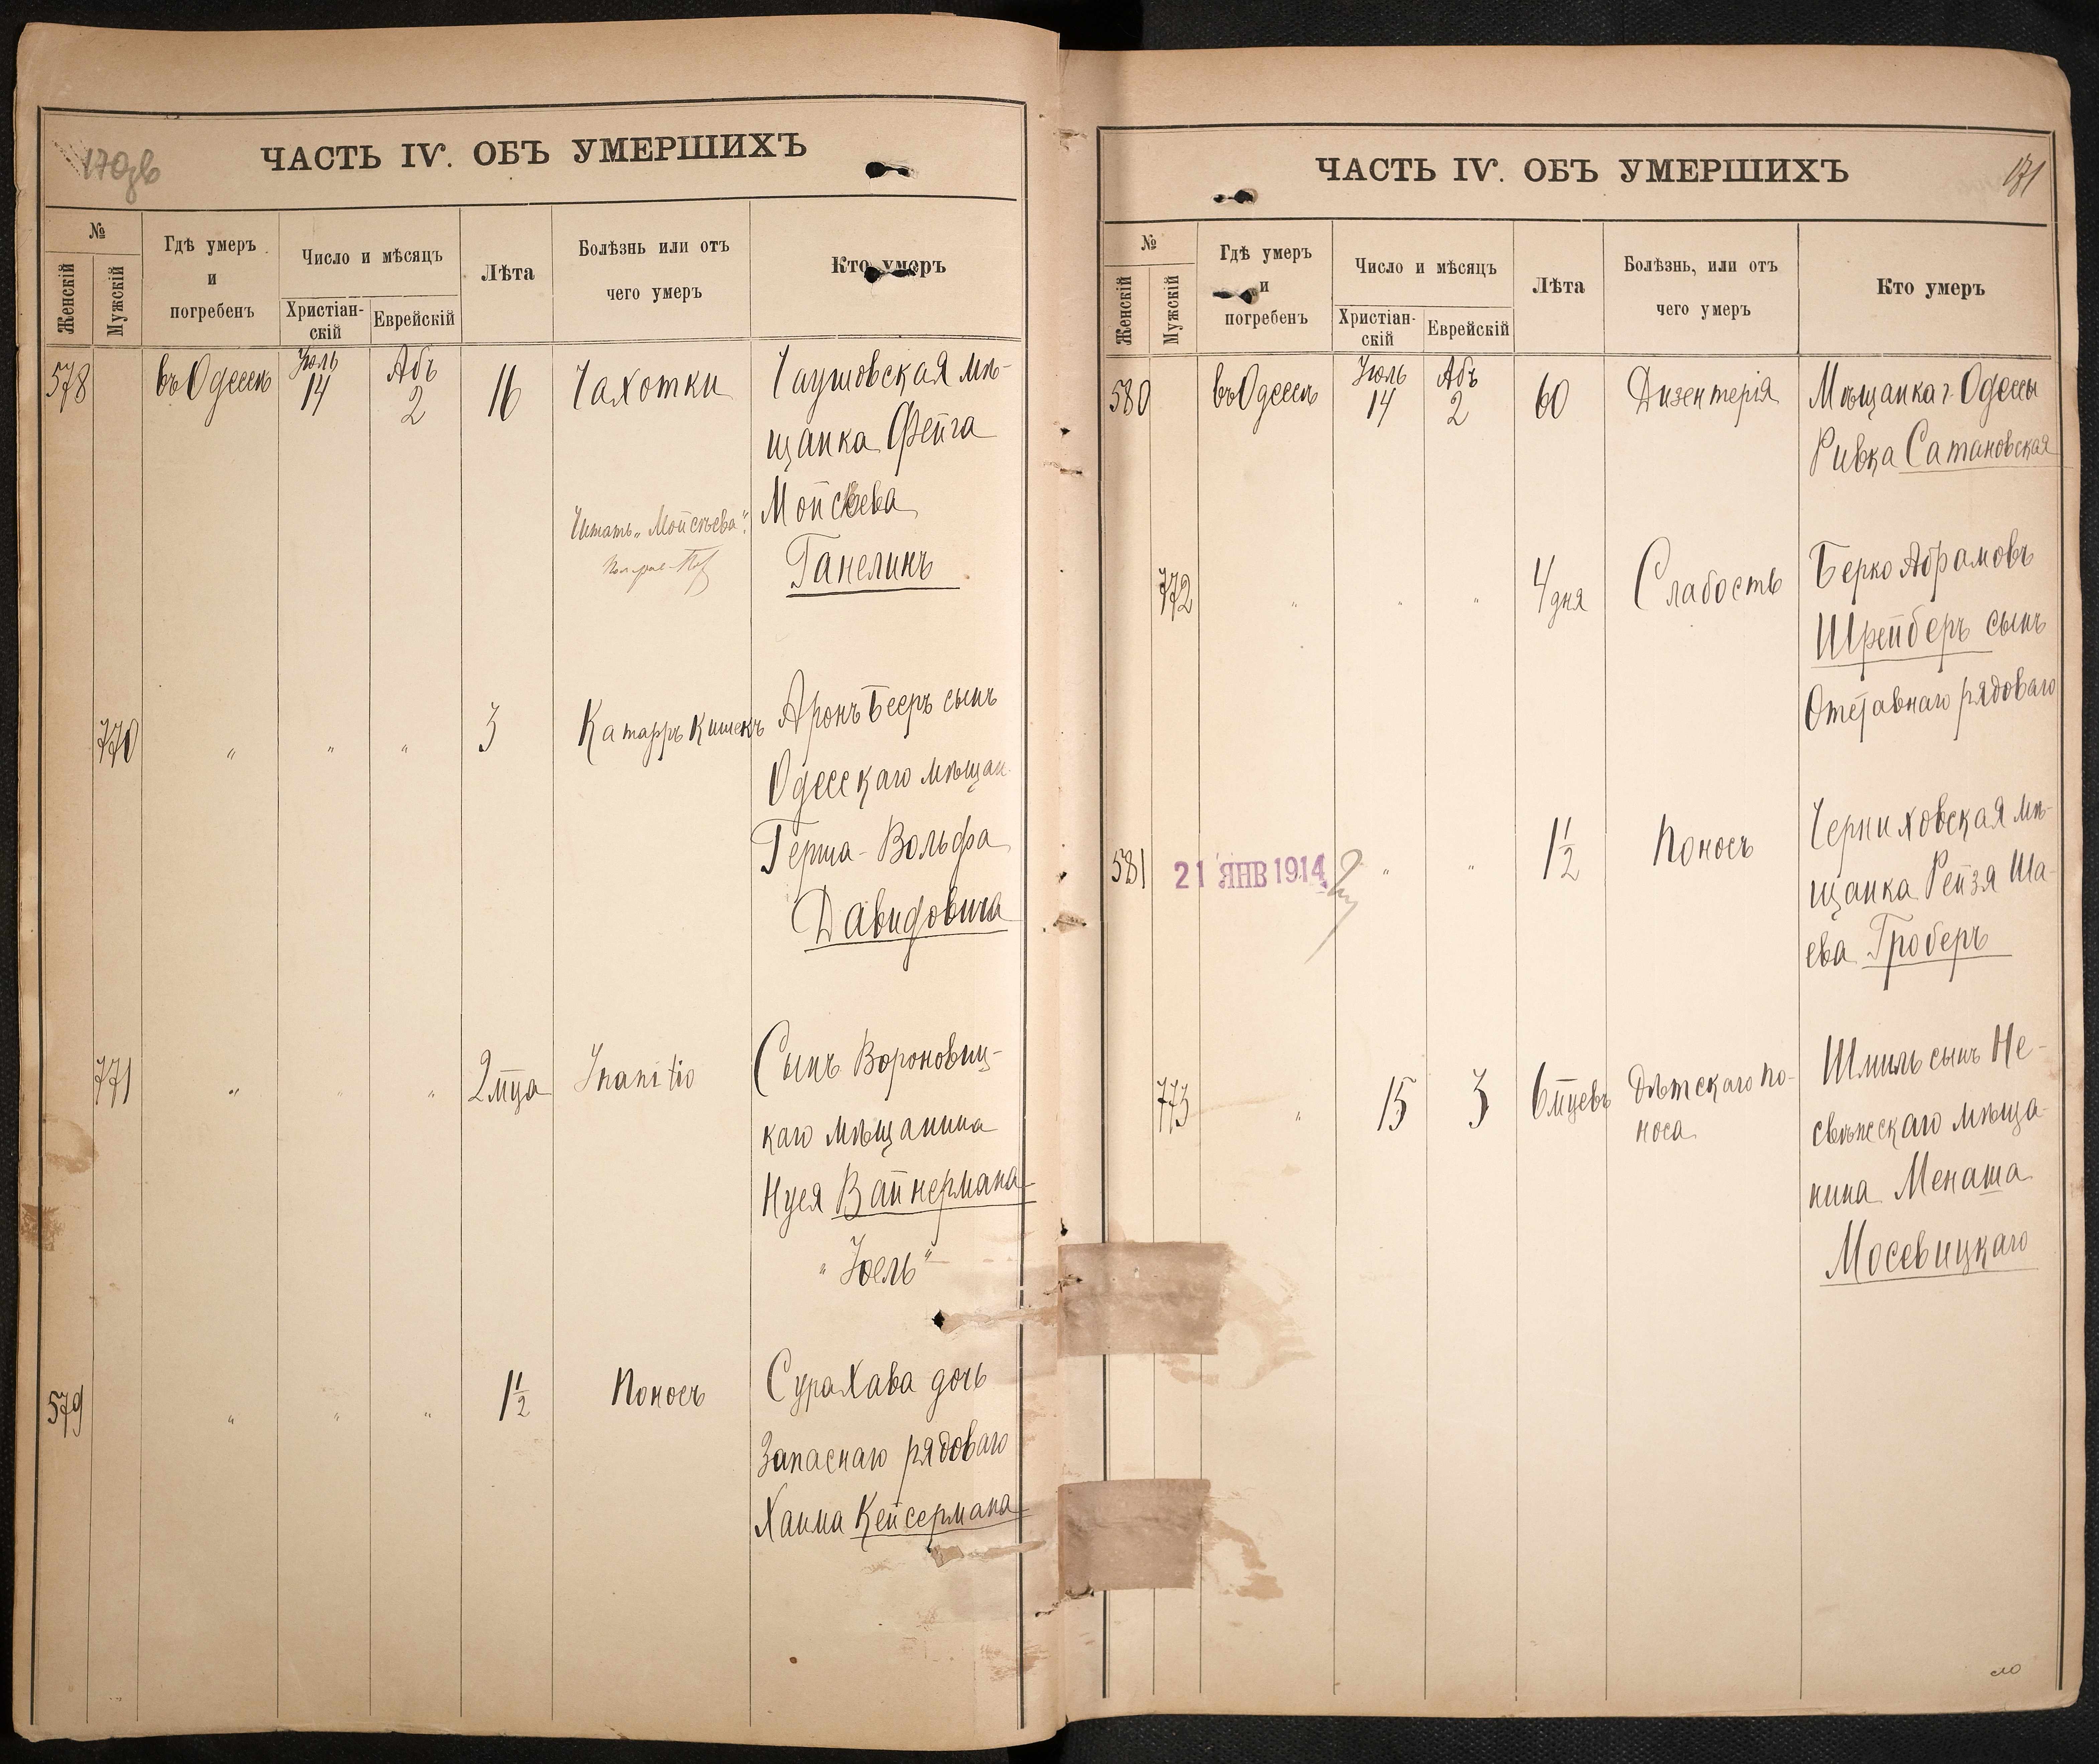 170об
ЧАСТЬ IV. ОБЪ УМЕРШИХЪ
№
Женскій
Мужскій
Гдѣ умеръ
и
погребенъ
Число и мѣсяцъ
Христіан-
скій
Еврейскій
Лѣта
Болѣзнь или отъ
чего умеръ
Кто умеръ
578 въ Одессѣ Іюль 14 Абъ 2 16 Чахотки Чаушовская мѣ-
щанка Фейга
Мойсѣева
Читать „Мойсѣева“.
Ганелинъ
770 „ „ „ 3 Катарръ Кишекъ Аронъ Бееръ сынъ
Одесскаго мѣщан.
Герша-Вольфа
Давидовича
771 „ „ „ 2 мца Inanitio Сынъ Вороновиц-
каго мѣщанина
Нуся Вайнермана
„Іоель“
579 „ „ „ 1 1/2 Поносъ Сура Хава дочь
Запаснаго рядоваго
Хаима Кейсермана
171
ЧАСТЬ IV. ОБЪ УМЕРШИХЪ
№
Женскій
Мужскій
Гдѣ умеръ
и
погребенъ
Число и мѣсяцъ
Христіан-
скій
Еврейскій
Лѣта
Болѣзнь, или отъ
чего умеръ
Кто умеръ
580 въ Одессѣ Іюль 14 Абъ 2 60 Дизентерія Мѣщанка г. Одессы
Ривка Сатановская
772 „ „ „ 4 дня Слабость Берко Абрамовъ
Шрейберъ сынъ
Отставнаго рядоваго
581 21 ЯНВ 1914 „ „ 1 1/2 Поносъ Черниховская мѣ-
щанка Рейзя Ша-
ева Гроберъ
773 „ 15 3 6 мцевъ Дѣтскаго по-
носа
Шмиль сынъ Не-
свѣжскаго мѣща-
нина Менаша
Мосевицкаго